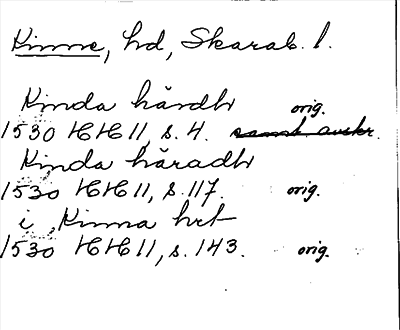 Kinne, hd, Skarab. l.
Kinda härdh orig.
1530 HH 11 s. 4. samt. avskr.
Kinda häradh
1530 HH 11, s. 117. orig.
i Kinna hrt
1530 HH 11, s. 143. orig.